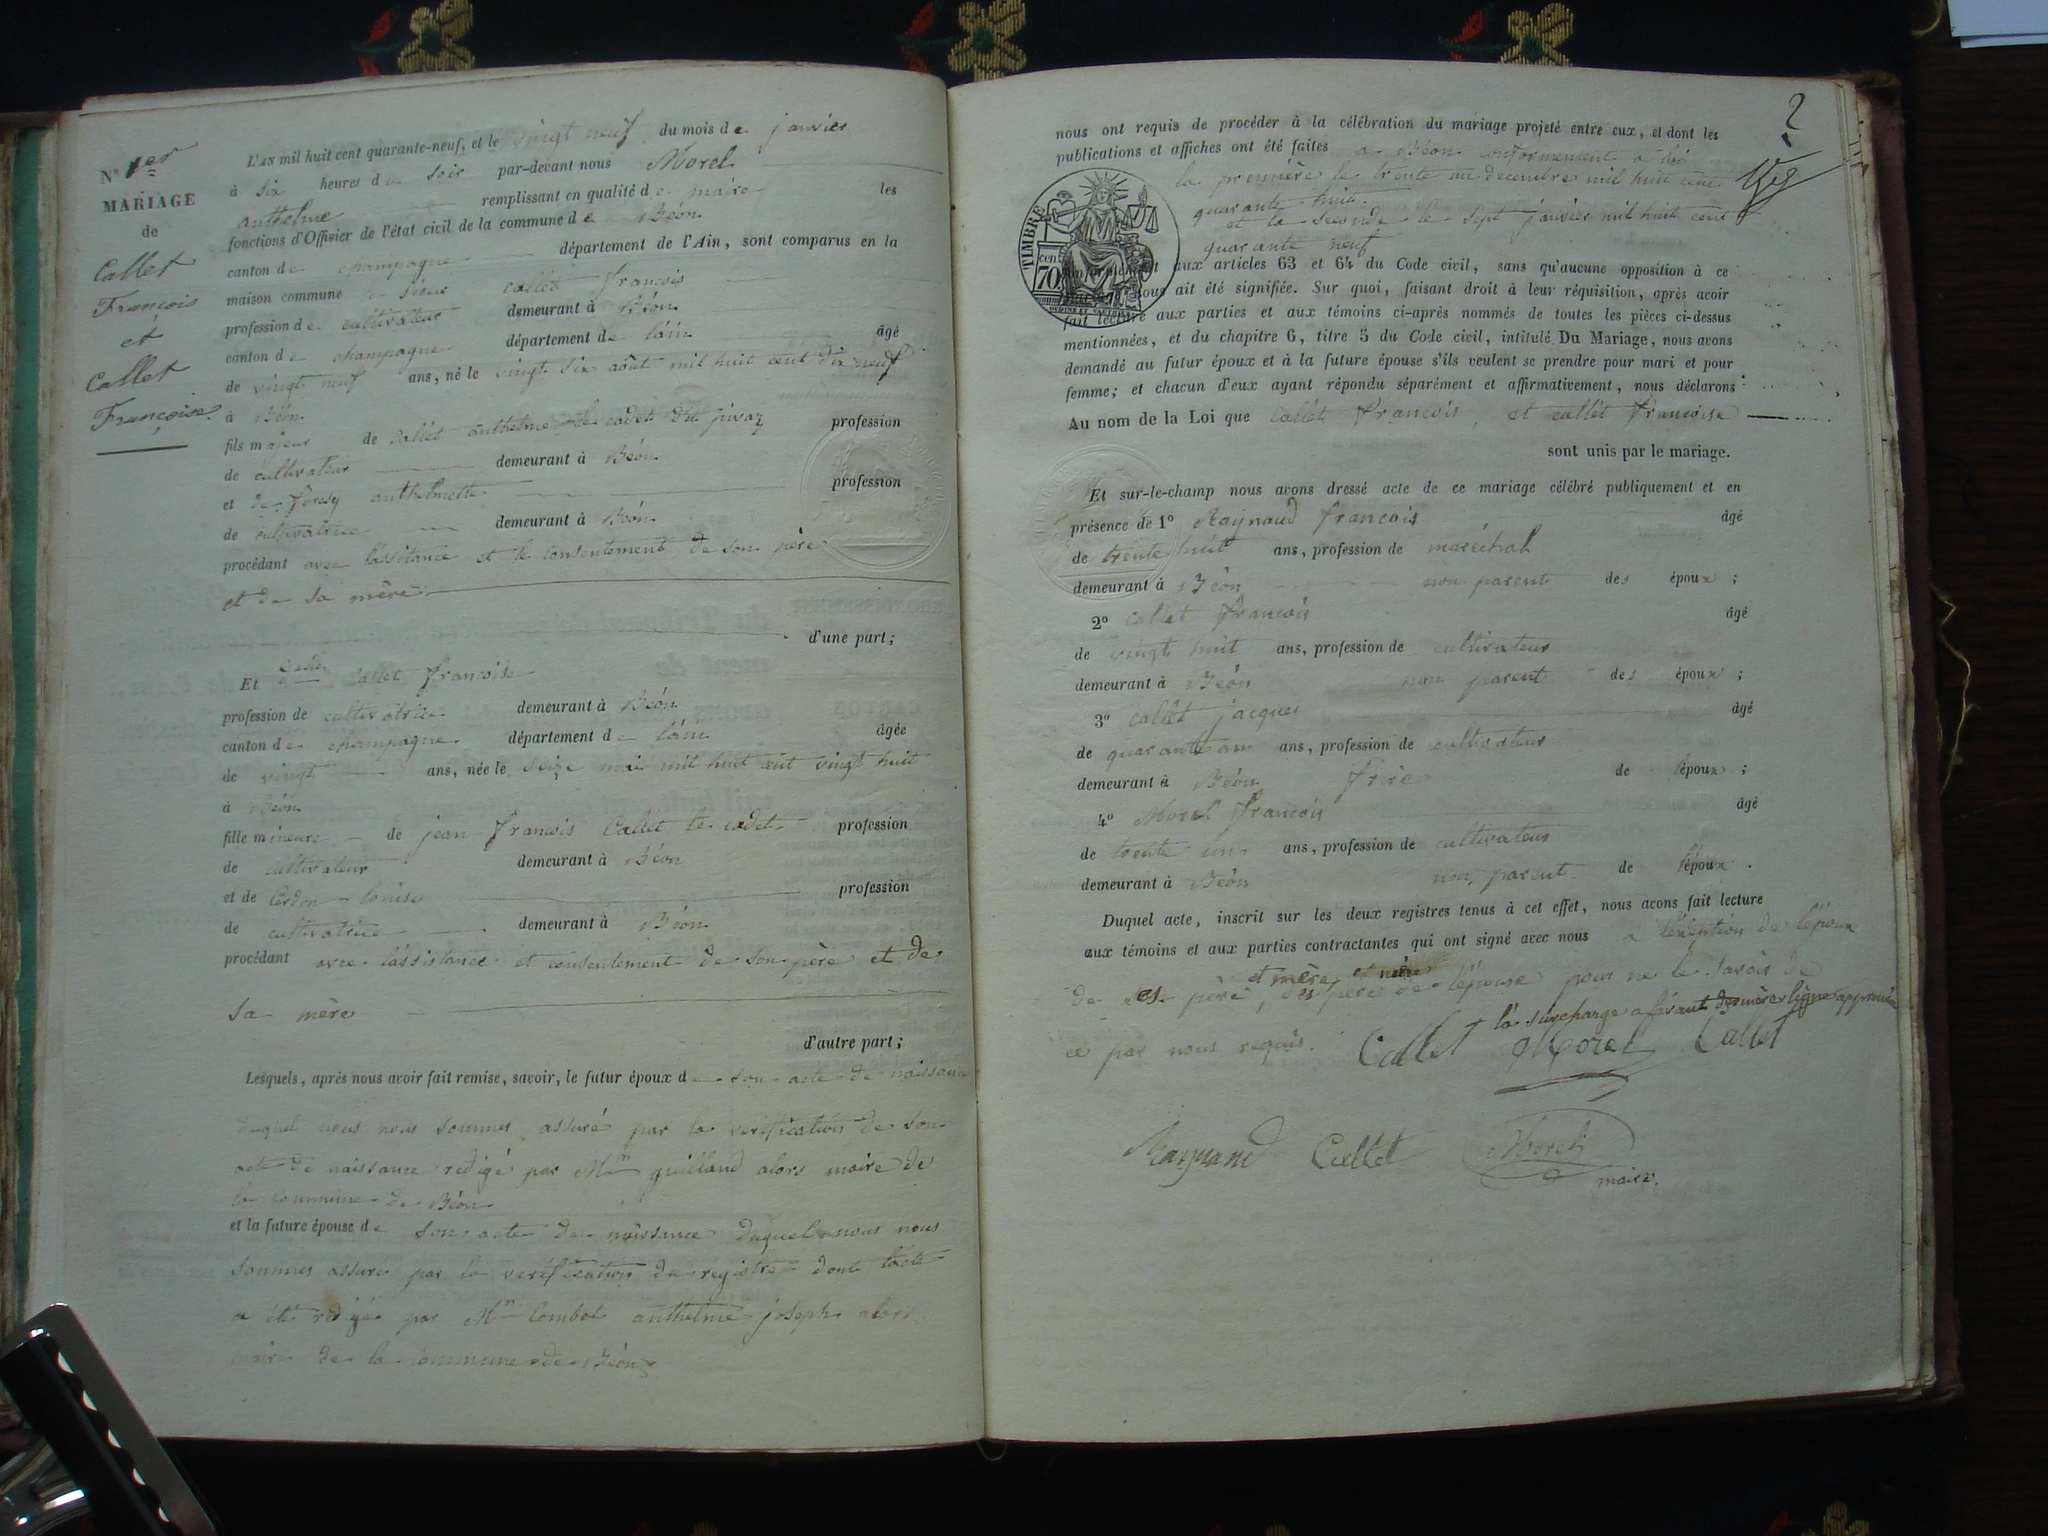 N° 1er
MARIAGE
de
Callet
François
et
Callet
Françoise
L'AN mil huit cent quarante-neuf, et le vingt neuf du mois de janvier
à six heures du soir par-devant nous Morel
anthelme remplissant en qualité de maire les
fonctions d'Officier de l'état civil de la commune de Béon
canton de champagne département de l'Ain, sont comparus en la
maison commune le sieur callet francois
profession de cultivateur demeurant à Béon
canton de champagne département de l'ain âgé
de vingt neuf ans, né le vingt six août mil huit cent dix neuf
à Béon
fils majeur de callet anthelme le cadet dit profession
de cultivateur demeurant à Béon
et de anthelmette profession
de cultivatrice demeurant à Béon
procédant avec l'assistance et le consentement de son père
et de sa mère
d'une part;
Et callet francoise
profession de cultivatrice demeurant à Béon
canton de champagne département de l'ain âgée
de vingt ans, née le seize mai mil huit cent vingt huit
à Béon
fille mineure de jean francois Callet le cadet profession
de cultivateur demeurant à Béon
et de Cerdon louise profession
de cultivatrice demeurant à Béon
procédant avec l'assistance et consentement de son père et de
sa mère
d'autre part;
Lesquels, après nous avoir fait remise, savoir, le futur époux de son acte de naissance
duquel nous nous sommes assuré par la verification de son
acte de naissance redigé par Mr guilland alors maire de
la commune de Béon
et la future épouse de son acte de naissance duquel nous nous
sommes assure par la verification du registre dont l'acte
a été redigé par Mr Combot anthelme joseph alors
maire de la commune de Béon
2
nous ont requis de procéder à la célébration du mariage projeté entre eux, et dont les
publications et affiches ont été faites a Béon
la premiere le trente un decembre mil huit cent
quarante huit
et la seconde le sept janvier mil huit cent
quarante neuf
TIMBRE
cen
70
conformément aux articles 63 et 64 du Code civil, sans qu'aucune opposition à ce
mariage nous ait été signifiée. Sur quoi, faisant droit à leur réquisition, après avoir
fait lecture aux parties et aux témoins ci-après nommés de toutes les pièces ci-dessus
mentionnées, et du chapitre 6, titre 5 du Code civil, intitulé Du Mariage, nous avons
demandé au futur époux et à la future épouse s'ils veulent se prendre pour mari et pour
femme; et chacun d'eux ayant répondu séparément et affirmativement, nous déclarons
Au nom de la Loi que Callet francois et callet francoise
sont unis par le mariage.
Et sur-le-champ nous avons dressé acte de ce mariage célébré publiquement et en
présence de 1° Raynaud francois âgé
de trente huit ans, profession de maréchal
demeurant à Béon non parent des époux;
2° callet francois âgé
de vingt huit ans, profession de cultivateur
demeurant à Béon non parent des époux;
3° callet jacques âgé
de quarante un ans, profession de cultivateur
demeurant à Béon frère de l'époux;
4° Morel francois âgé
de trente un ans, profession de cultivateur
demeurant à Béon non parent de l'époux.
Duquel acte, inscrit sur les deux registres tenus à cet effet, nous avons fait lecture
aux témoins et aux parties contractantes qui ont signé avec nous a l'exeption de l'époux
et mère et mère
de ses père, des père de l'épouse pour ne le savoir de
la surcharge avant dernière ligne approuvée
ce par nous requis. Callet Morel Callet
Raynaud Callet Morel
maire.